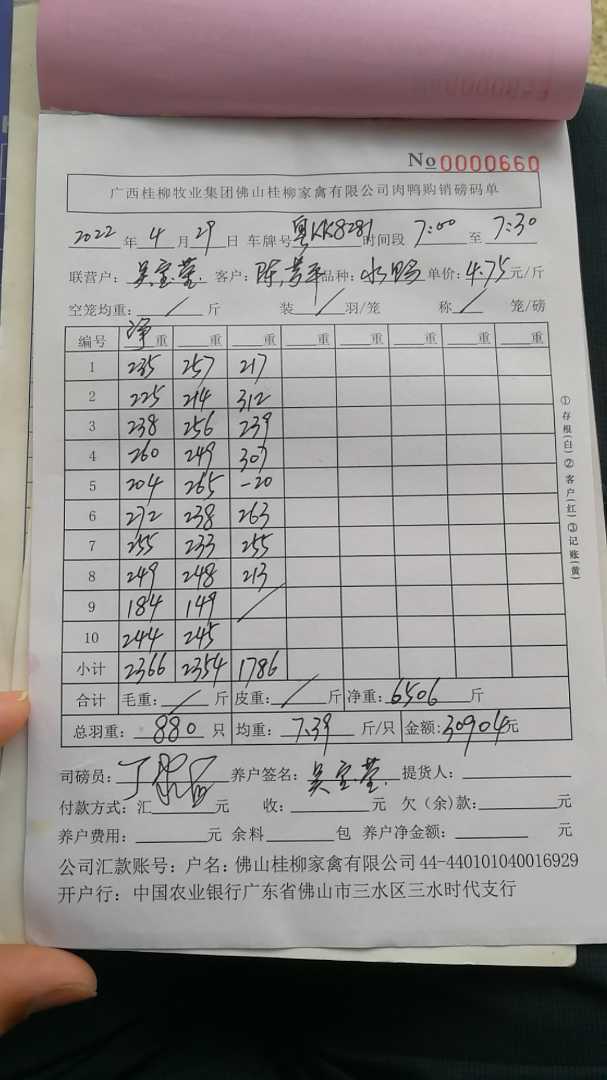 No 0000660
广西桂柳牧业集团佛山桂柳家禽有限公司肉鸭购销磅码单
2022 年 4 月 29 日 车牌号 粤KK8281 时间段 7:00 至 7:30
联营户: 吴宝莹 客户: 陈芳平 品种: 水鸭 单价: 4.75 元/斤
空笼均重: / 斤 装 / 羽/笼 称 / 笼/磅
编号 净重 重 重 重 重 重 重 重
1 235 257 217
2 225 214 312
3 238 256 239
4 260 249 307
5 204 265 -20
6 272 238 263
7 255 233 255
8 249 248 213
9 184 149 /
10 244 245
小计 2366 2354 1786
合计 毛重: / 斤 皮重: / 斤 净重: 6506 斤
总羽重: 880 只 均重: 7.39 斤/只 金额: 30904 元
司磅员: 养户签名: 吴宝莹 提货人:
付款方式: 汇 元 收: 元 欠(余)款: 元
养户费用: 元 余料 包 养户净金额: 元
公司汇款账号: 户名: 佛山桂柳家禽有限公司 44-440101040016929
开户行: 中国农业银行广东省佛山市三水区三水时代支行
①存根(白)②客户(红)③记账(黄)